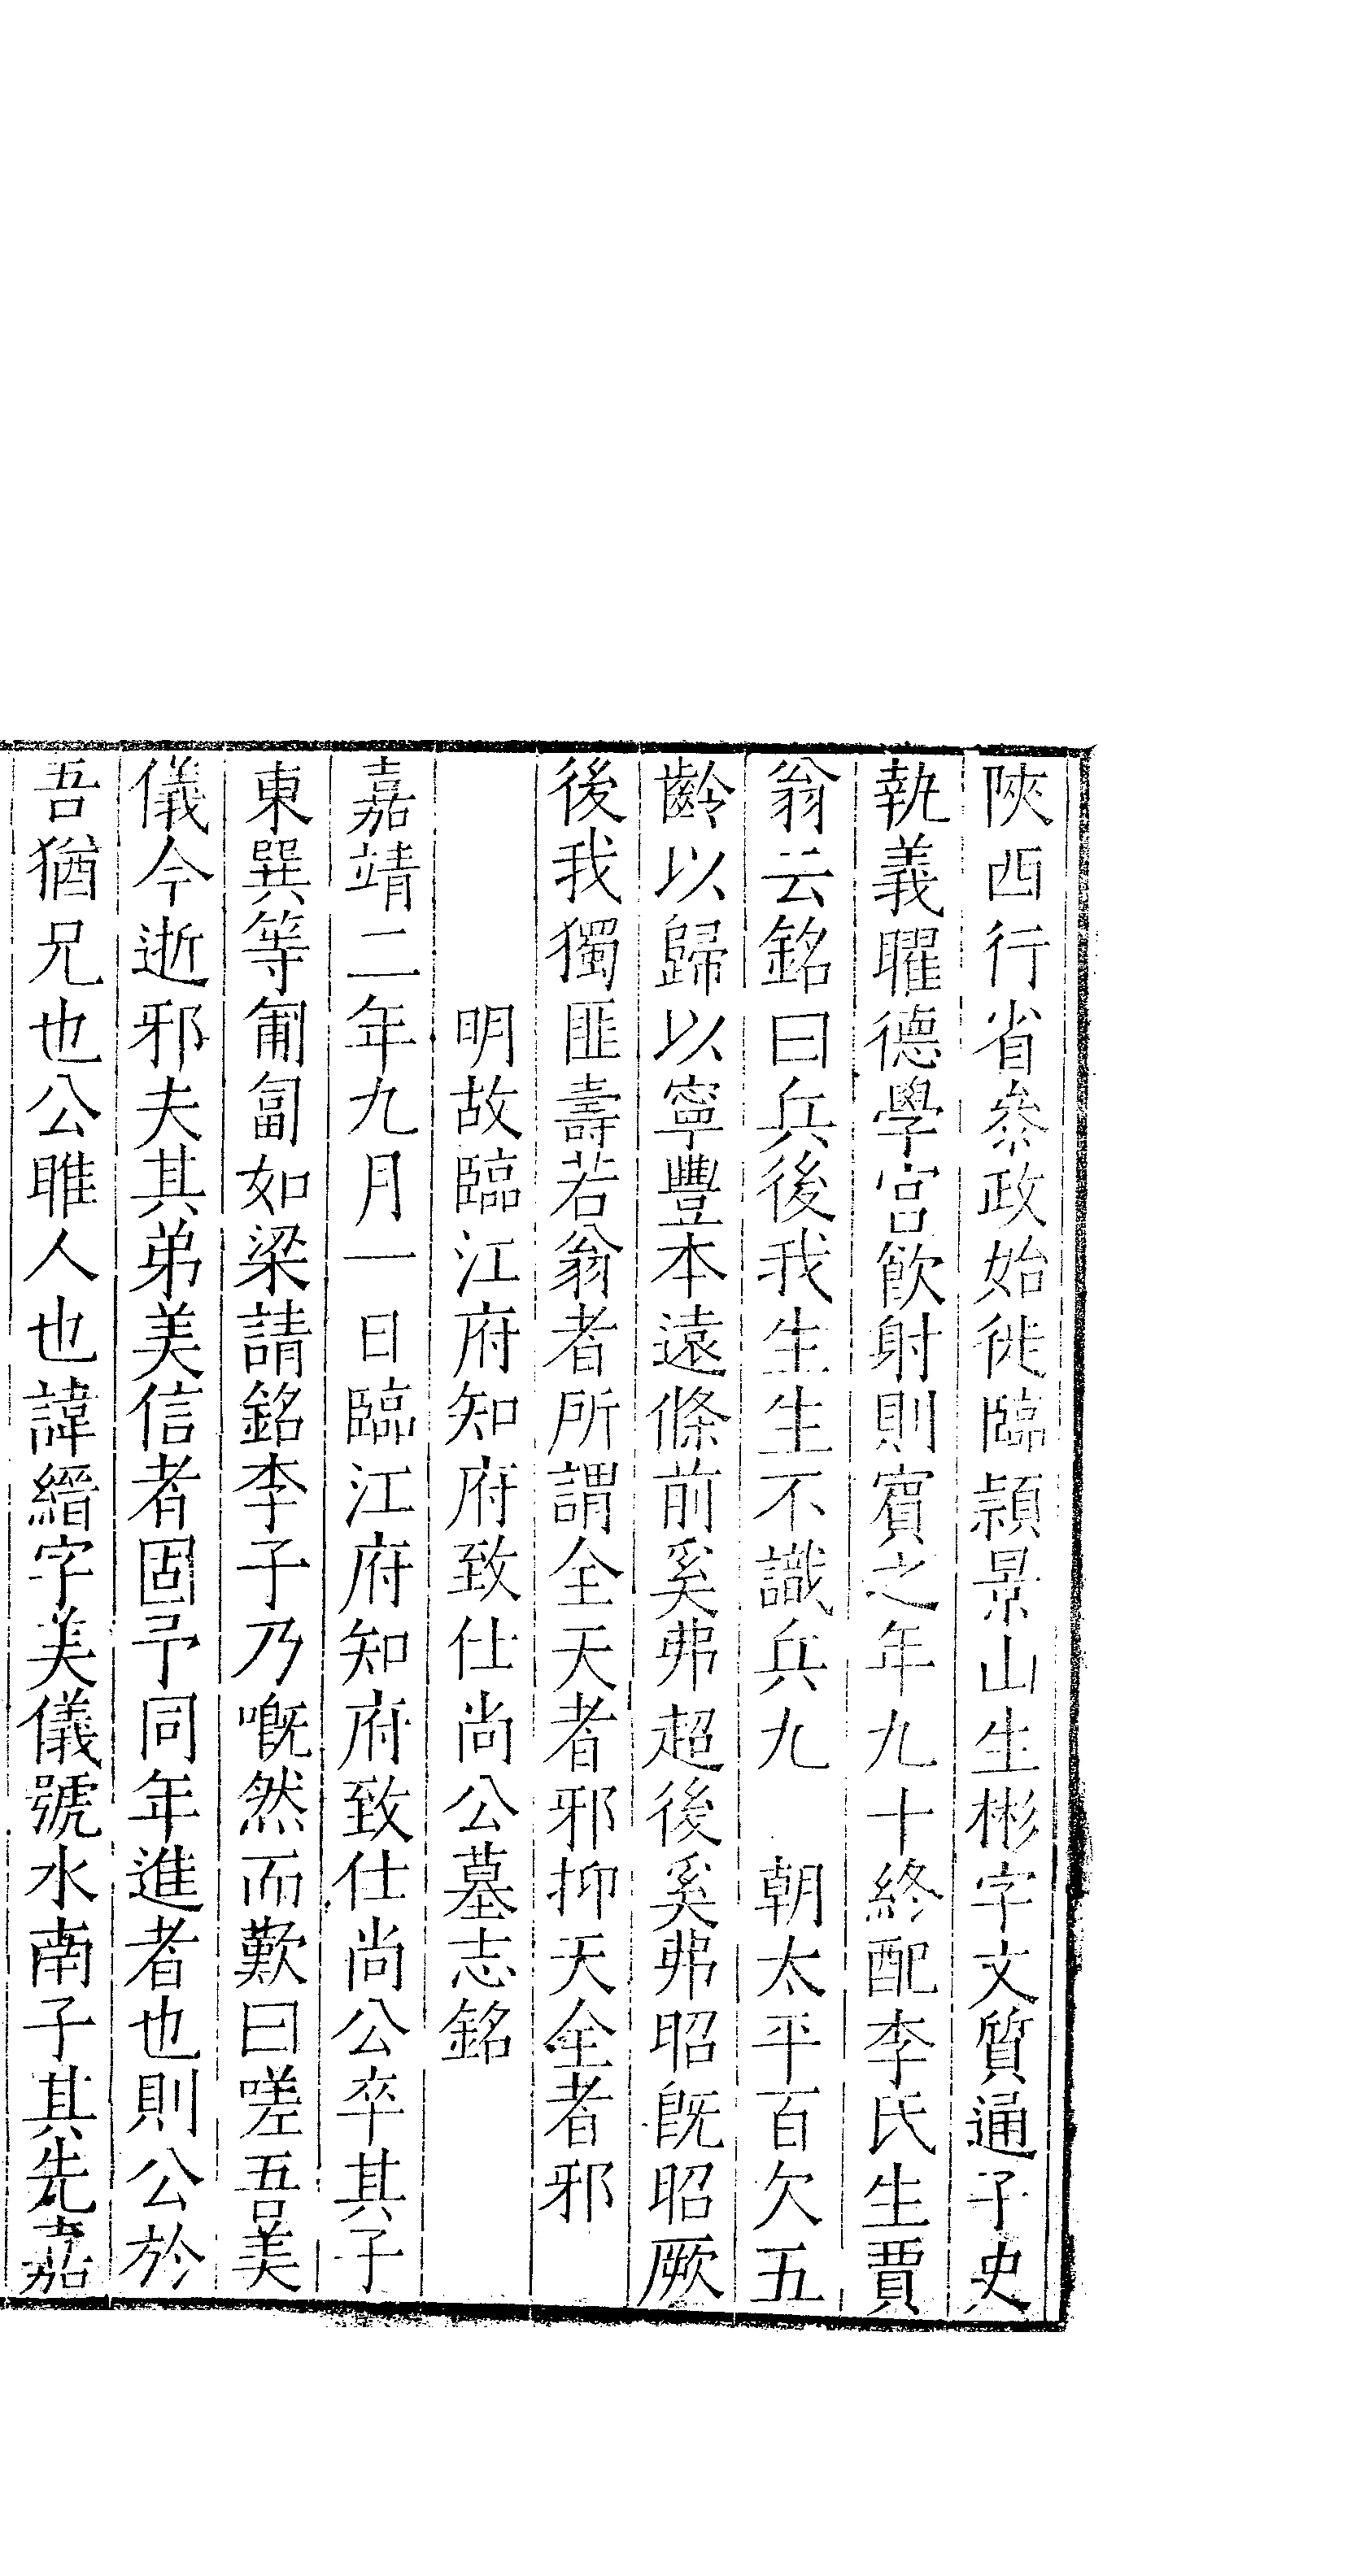 陜西行省叅政始徙臨頴景山生彬字文質通子史
執義曜德學宮飲射則賓之年九十終配李氏生賈
翁云銘曰兵後我生生不識兵九　朝太平百欠五
齡以歸以寧豐本遠條前奚弗超後奚弗昭旣昭厥
後我獨匪壽若翁者所謂全天者邪抑天全者邪
明故臨江府知府致仕尚公墓志銘
嘉靖二年九月一日臨江府知府致仕尚公卒其子
東巽等匍匐如梁請銘李子乃嘅然而歎曰嗟吾美
儀今逝邪夫其弟美信者固予同年進者也則公於
吾猶兄也公睢人也諱縉字美儀號水南子其先嘉